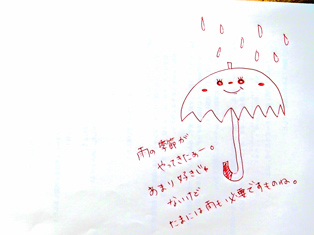 雨の季節が
やってきたぁー。
あまり好きじゃ
ないけど
たまには雨も必要ですものね。